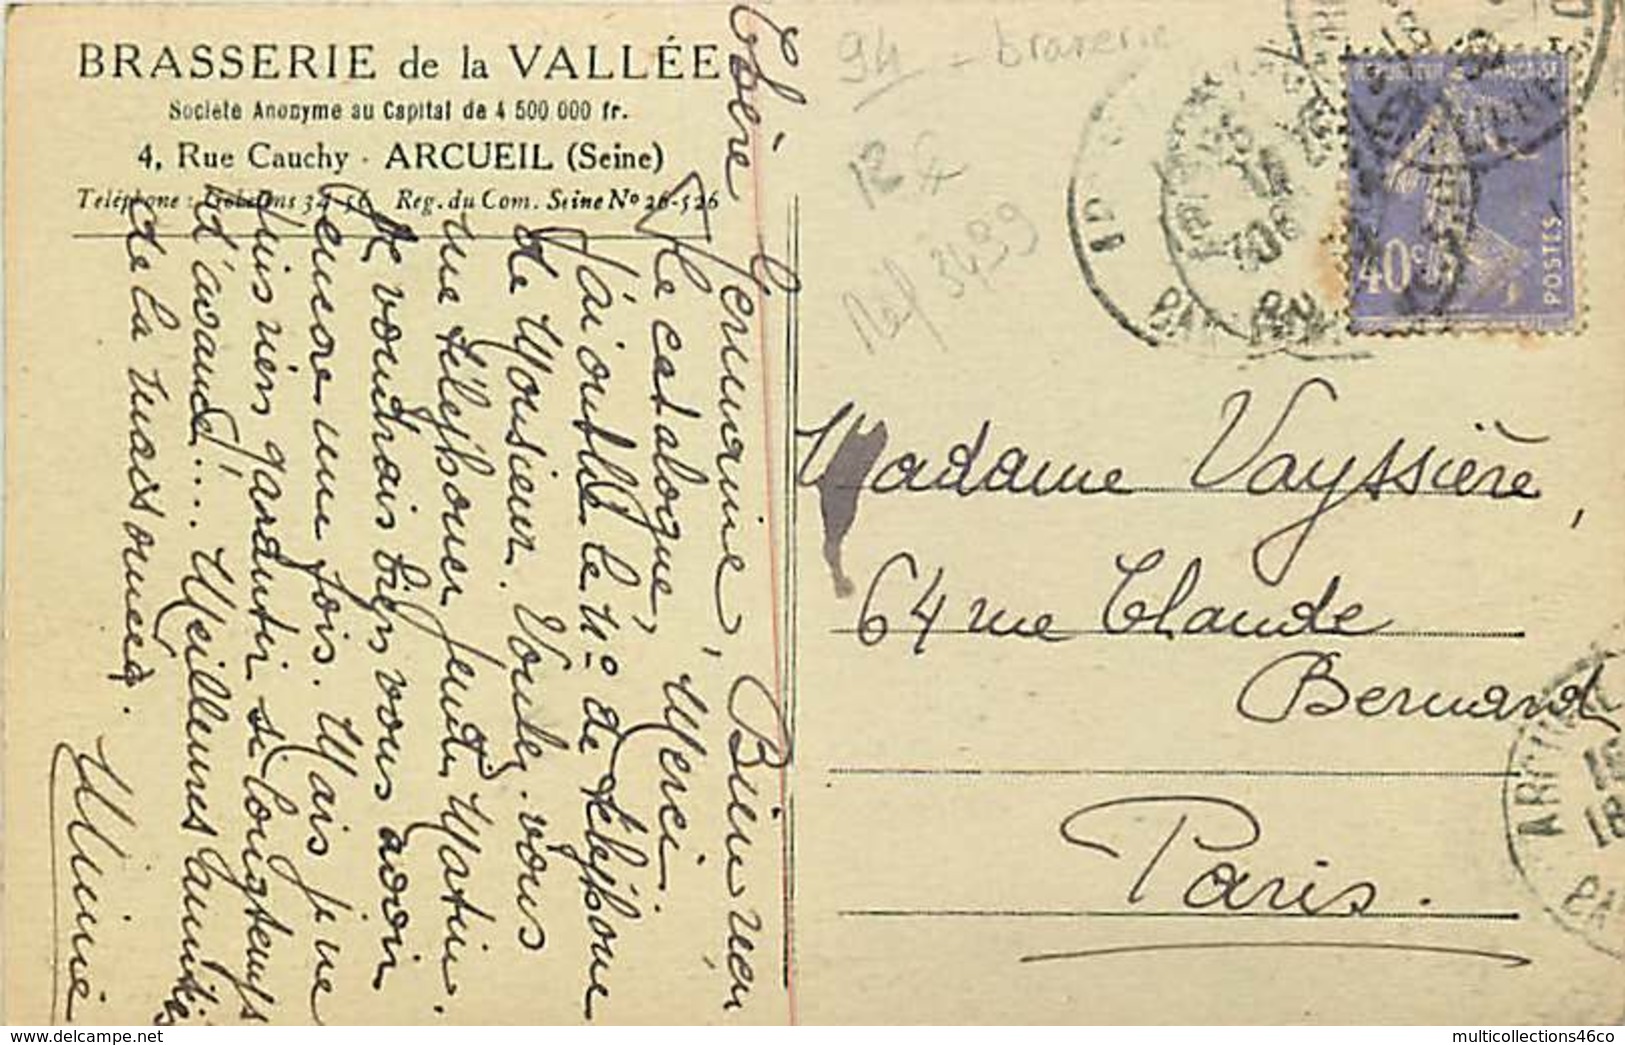 BRASSERIE de la VALLÉE
Société Anonyme au Capital de 4 500 000 fr.
4, Rue Cauchy - ARCUEIL (Seine)
Téléphone : Gobelins 34-56 Reg. du Com. Seine No 26-526
94 - brasserie
12
Ref 3499
RÉPUBLIQUE FRANÇAISE
40c
POSTES
Chère Germaine, Bien reçu
le catalogue, Merci.
J'ai oublié le No de téléphone
de Monsieur. Voulez-vous
me téléphoner Jeudi Matin.
Je voudrais bien vous avoir
encore une fois. Mais je ne
puis rien garantir si longtemps
d'avance!... Meilleures amitiés
de la maisonnée.
Mimi
Madame Vayssière,
64 rue Claude
Bernard
Paris.
ARCUEIL
multicollections46co